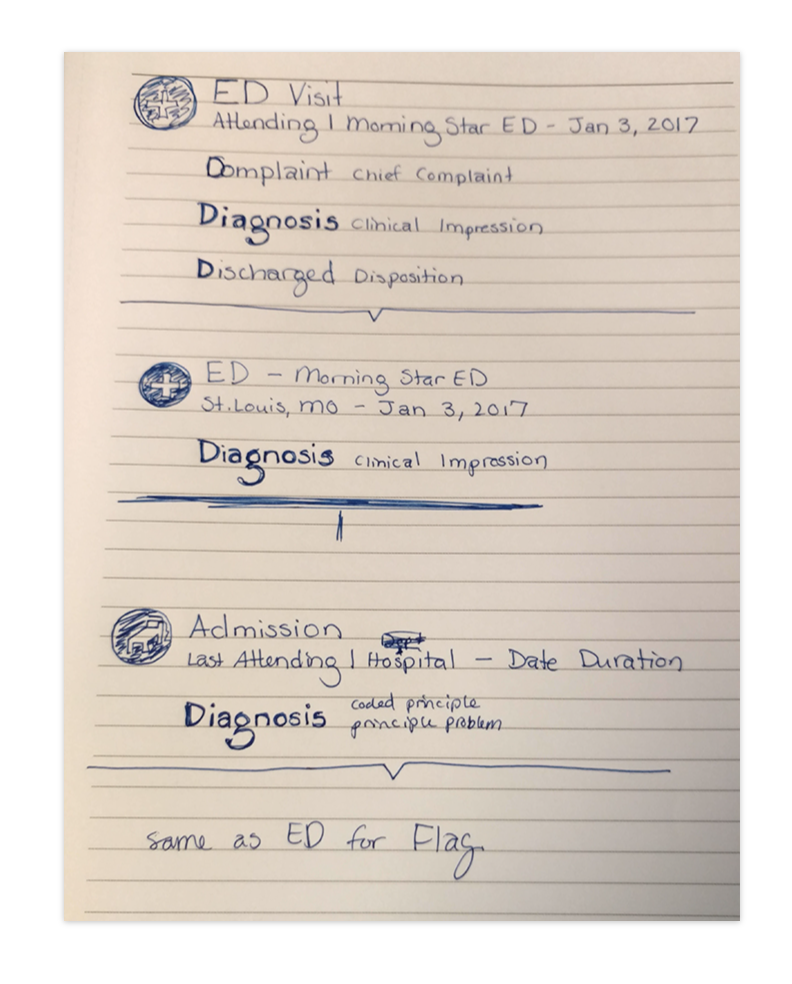 ED Visit
Attending | Morning Star ED - Jan 3, 2017
Complaint Chief Complaint
Diagnosis Clinical Impression
Discharged Disposition
ED - Morning Star ED
St. Louis, MO - Jan 3, 2017
Diagnosis Clinical Impression
Admission
Last Attending | Hospital - Date Duration
Diagnosis coded principle
principle problem
same as ED for Flag